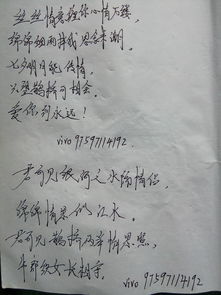 丝丝情意难你心情万缕，
绵绵细雨对我思念如潮。
七夕明月能传情，
人望鹊桥可相会。
爱你到永远！
vivo 97597114192
君可见银河之水隔情侣，
绵绵情思似江水。
君可见鹊桥两岸情思愁，
牛郎织女长相守。
vivo 97597114192